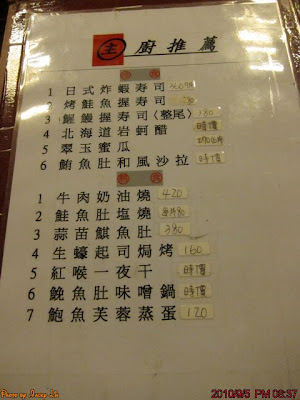 主 廚推薦
1 日式炸蝦寿司
2 烤鮭魚握寿司
3 鰻鰻握寿司(整尾) 380
4 北海道岩蚵醋 時價
5 翠玉蜜瓜
6 鮪魚肚和風沙拉 時價
1 牛肉奶油燒 420
2 鮭魚肚塩燒
3 蒜苗鯕魚肚 380
4 生蠔起司焗烤 160
5 紅喉一夜干 時價
6 鮸魚肚味噌鍋 時價
7 鮑魚芙蓉蒸蛋 120
2010/9/5 PM 06:37